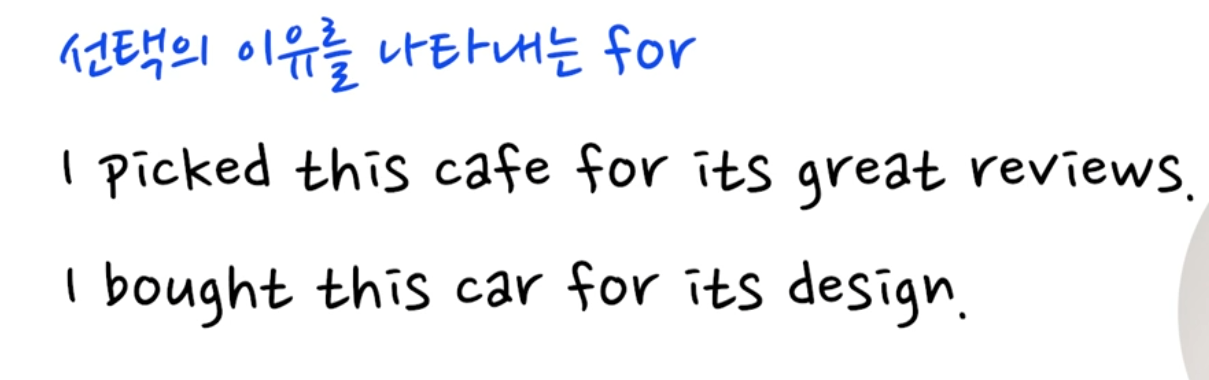 선택의 이유를 나타내는 for
I picked this cafe for its great reviews.
I bought this car for its design.